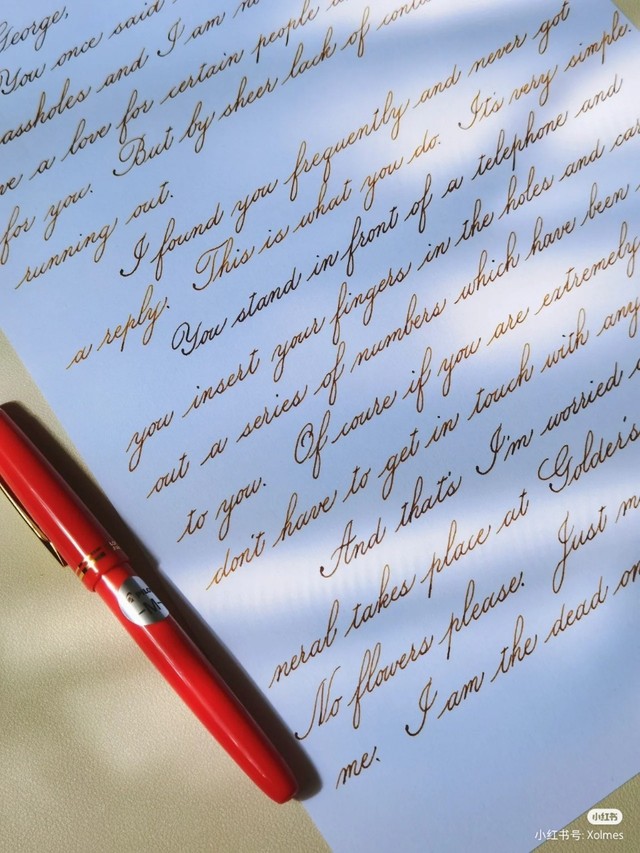 George,
You once said
assholes and I am
a love for certain people
for you. But by sheer lack of
running out.
I found you frequently and never got
a reply. This is what you do. It's very simple.
You stand in front of a telephone and
you insert your fingers in the holes and
out a series of numbers which have been
to you. Of course if you are extremely
don't have to get in touch with any
And that's I'm worried
neral takes place at Golder's
No flowers please. Just
me. I am the dead
小红书
小红书号: Xolmes